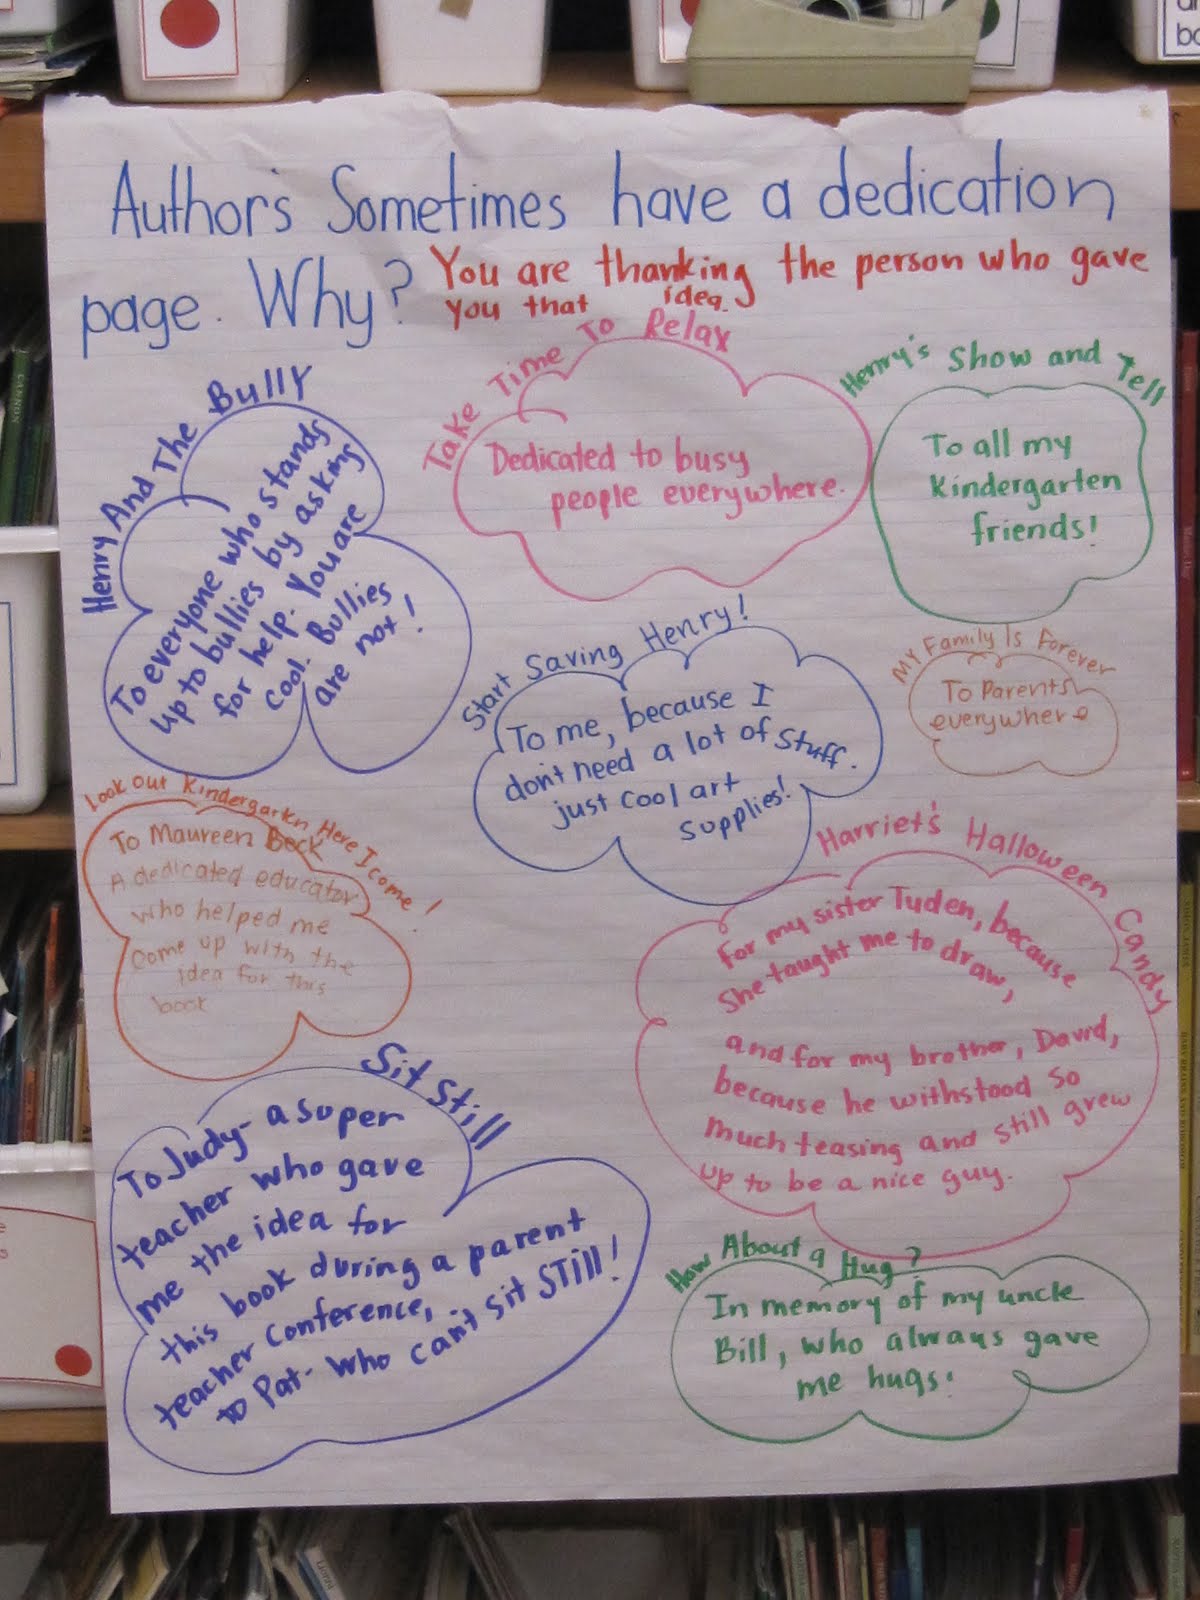 Author's Sometimes have a dedication
page. Why? You are thanking the person who gave
you that idea.
Henry And The Bully
To everyone who stands
up to bullies by asking
for help. You are
cool. Bullies
are not!
Take Time To Relax
Dedicated to busy
people everywhere.
Henry's Show and Tell
To all my
Kindergarten
friends!
Start Saving Henry!
To me, because I
don't need a lot of stuff.
just cool art
supplies!
My Family Is Forever
To Parents
everywhere
Look Out Kindergartn Here I come!
To Maureen Beck
A dedicated educator
who helped me
come up with the
idea for this
book
Harriet's Halloween Candy
For my sister Tuden, because
she taught me to draw,
and for my brother, David,
because he withstood so
much teasing and still grew
up to be a nice guy.
Sit Still
To Judy- a super
teacher who gave
me the idea for
this book during a parent
teacher Conference,
to Pat- who can't sit STill!
How About a Hug?
In memory of my uncle
Bill, who always gave
me hugs!
CANNON